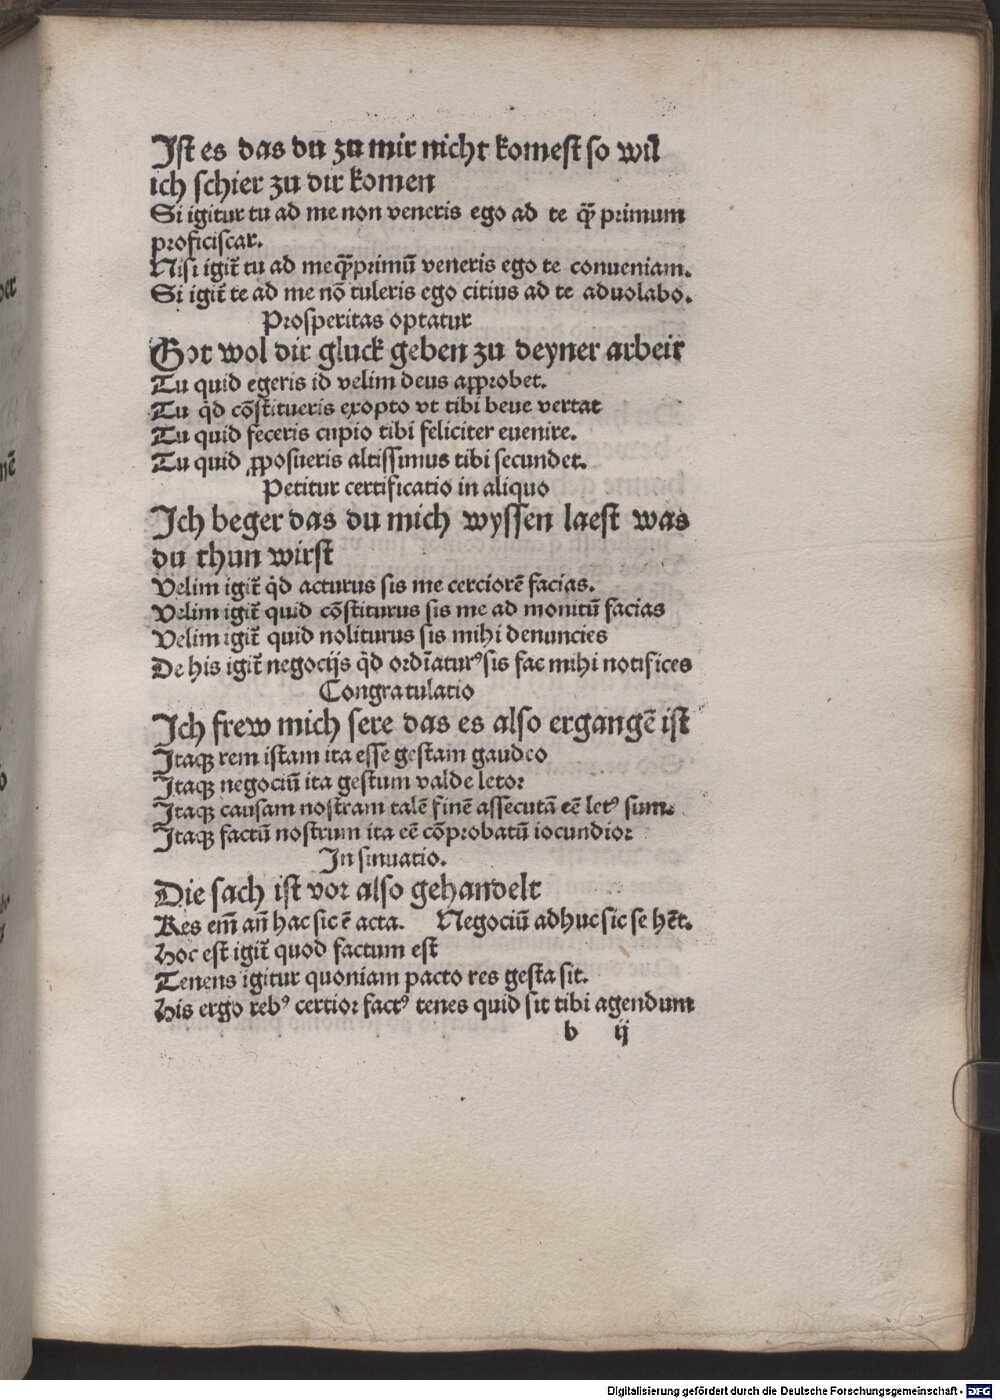 Ist es das du zu mir nicht komest so wil
ich schier zu dir komen
Si igitur tu ad me non veneris ego ad te qꝫ̃ primum
proficiscar.
Nisi igit̃ tu ad me qꝫ̃primũ veneris ego te conveniam.
Si igit̃ te ad me nõ tuleris ego citius ad te aduolabo.
Prosperitas optatur
Got wol dir gluck geben zu deyner arbeit
Tu quid egeris id velim deus approbet.
Tu q̇d cõstitueris exopto vt tibi beue vertat
Tu quid feceris cupio tibi feliciter euenire.
Tu quid ꝓposueris altissimus tibi secundet.
Petitur certificatio in aliquo
Ich beger das du mich wyssen laest was
du thun wirst
Velim igit̃ q̇d acturus sis me cerciorẽ facias.
Velim igit̃ quid cõstiturus sis me ad monitũ facias
Velim igit̃ quid noliturus sis mihi denuncies
De his igit̃ negocijs q̇d ordĩaturꝰ sis fac mihi notifices
Congratulatio
Ich frew mich sere das es also ergangẽ ist
Itaqꝫ rem istam ita esse gestam gaudeo
Itaqꝫ negociũ ita gestum valde letor
Itaqꝫ causam nostram talẽ finẽ assecutã eẽ letꝰ sum.
Itaqꝫ factũ nostrum ita eẽ cõprobatũ iocundior
In sinuatio.
Die sach ist vor also gehandelt
Res em̃ an̄ hac sic ẽ acta. Negociũ adhuc sic se hẽt.
Hoc est igit̃ quod factum est
Tenens igitur quoniam pacto res gesta sit.
His ergo rebꝰ certior factꝰ tenes quid sit tibi agendum
b ij
Digitalisierung gefördert durch die Deutsche Forschungsgemeinschaft - DFG